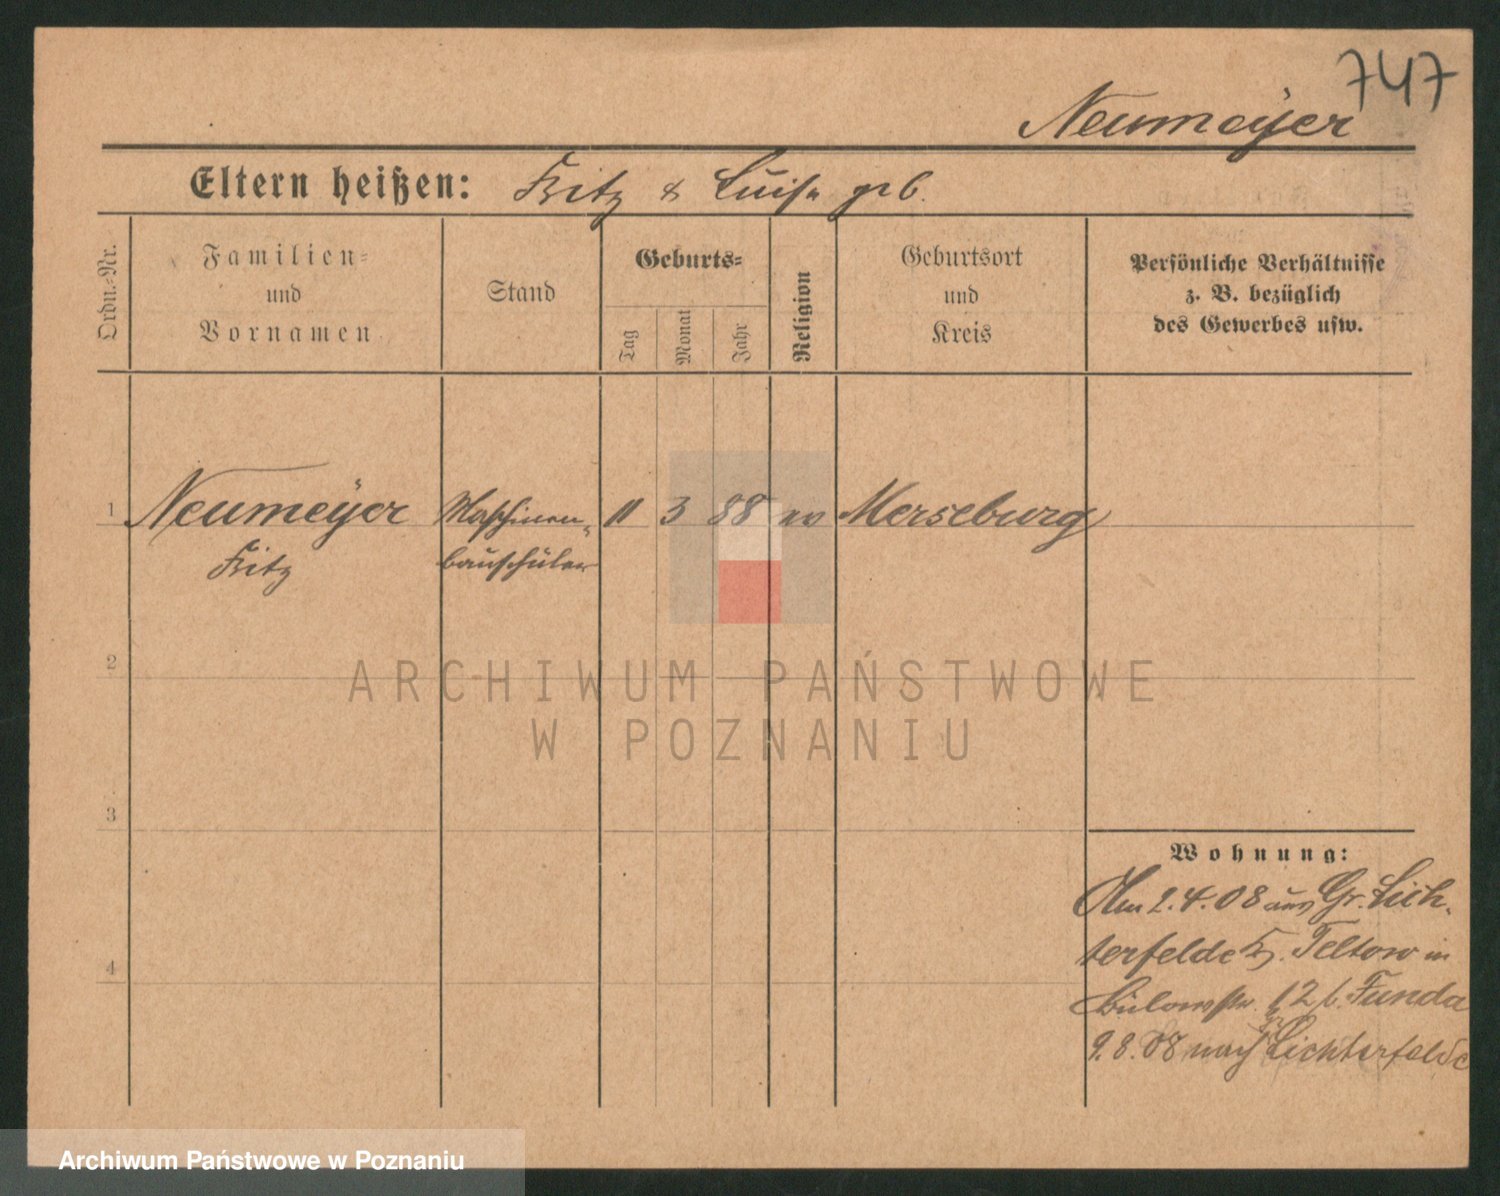 747
Neumeÿer
Eltern heißen: Fritz & Luise geb.
Ordn.-Nr.
Familien-
und
Vornamen
Stand
Geburts-
Tag
Monat
Jahr
Religion
Geburtsort
und
Kreis
Persönliche Verhältnisse
z. B. bezüglich
des Gewerbes usw.
1 Neumeÿer Maschinen- 11 3 88 ev Merseburg
Fritz bauschüler
2
ARCHIWUM PAŃSTWOWE
W POZNANIU
3
Wohnung:
Am 2.4.08 aus Gr. Lich-
terfelde Kr. Teltow in
Bülowstr. 12 b. Funda
9.8.08 nach Gr. Lichterfelde
4
Archiwum Państwowe w Poznaniu